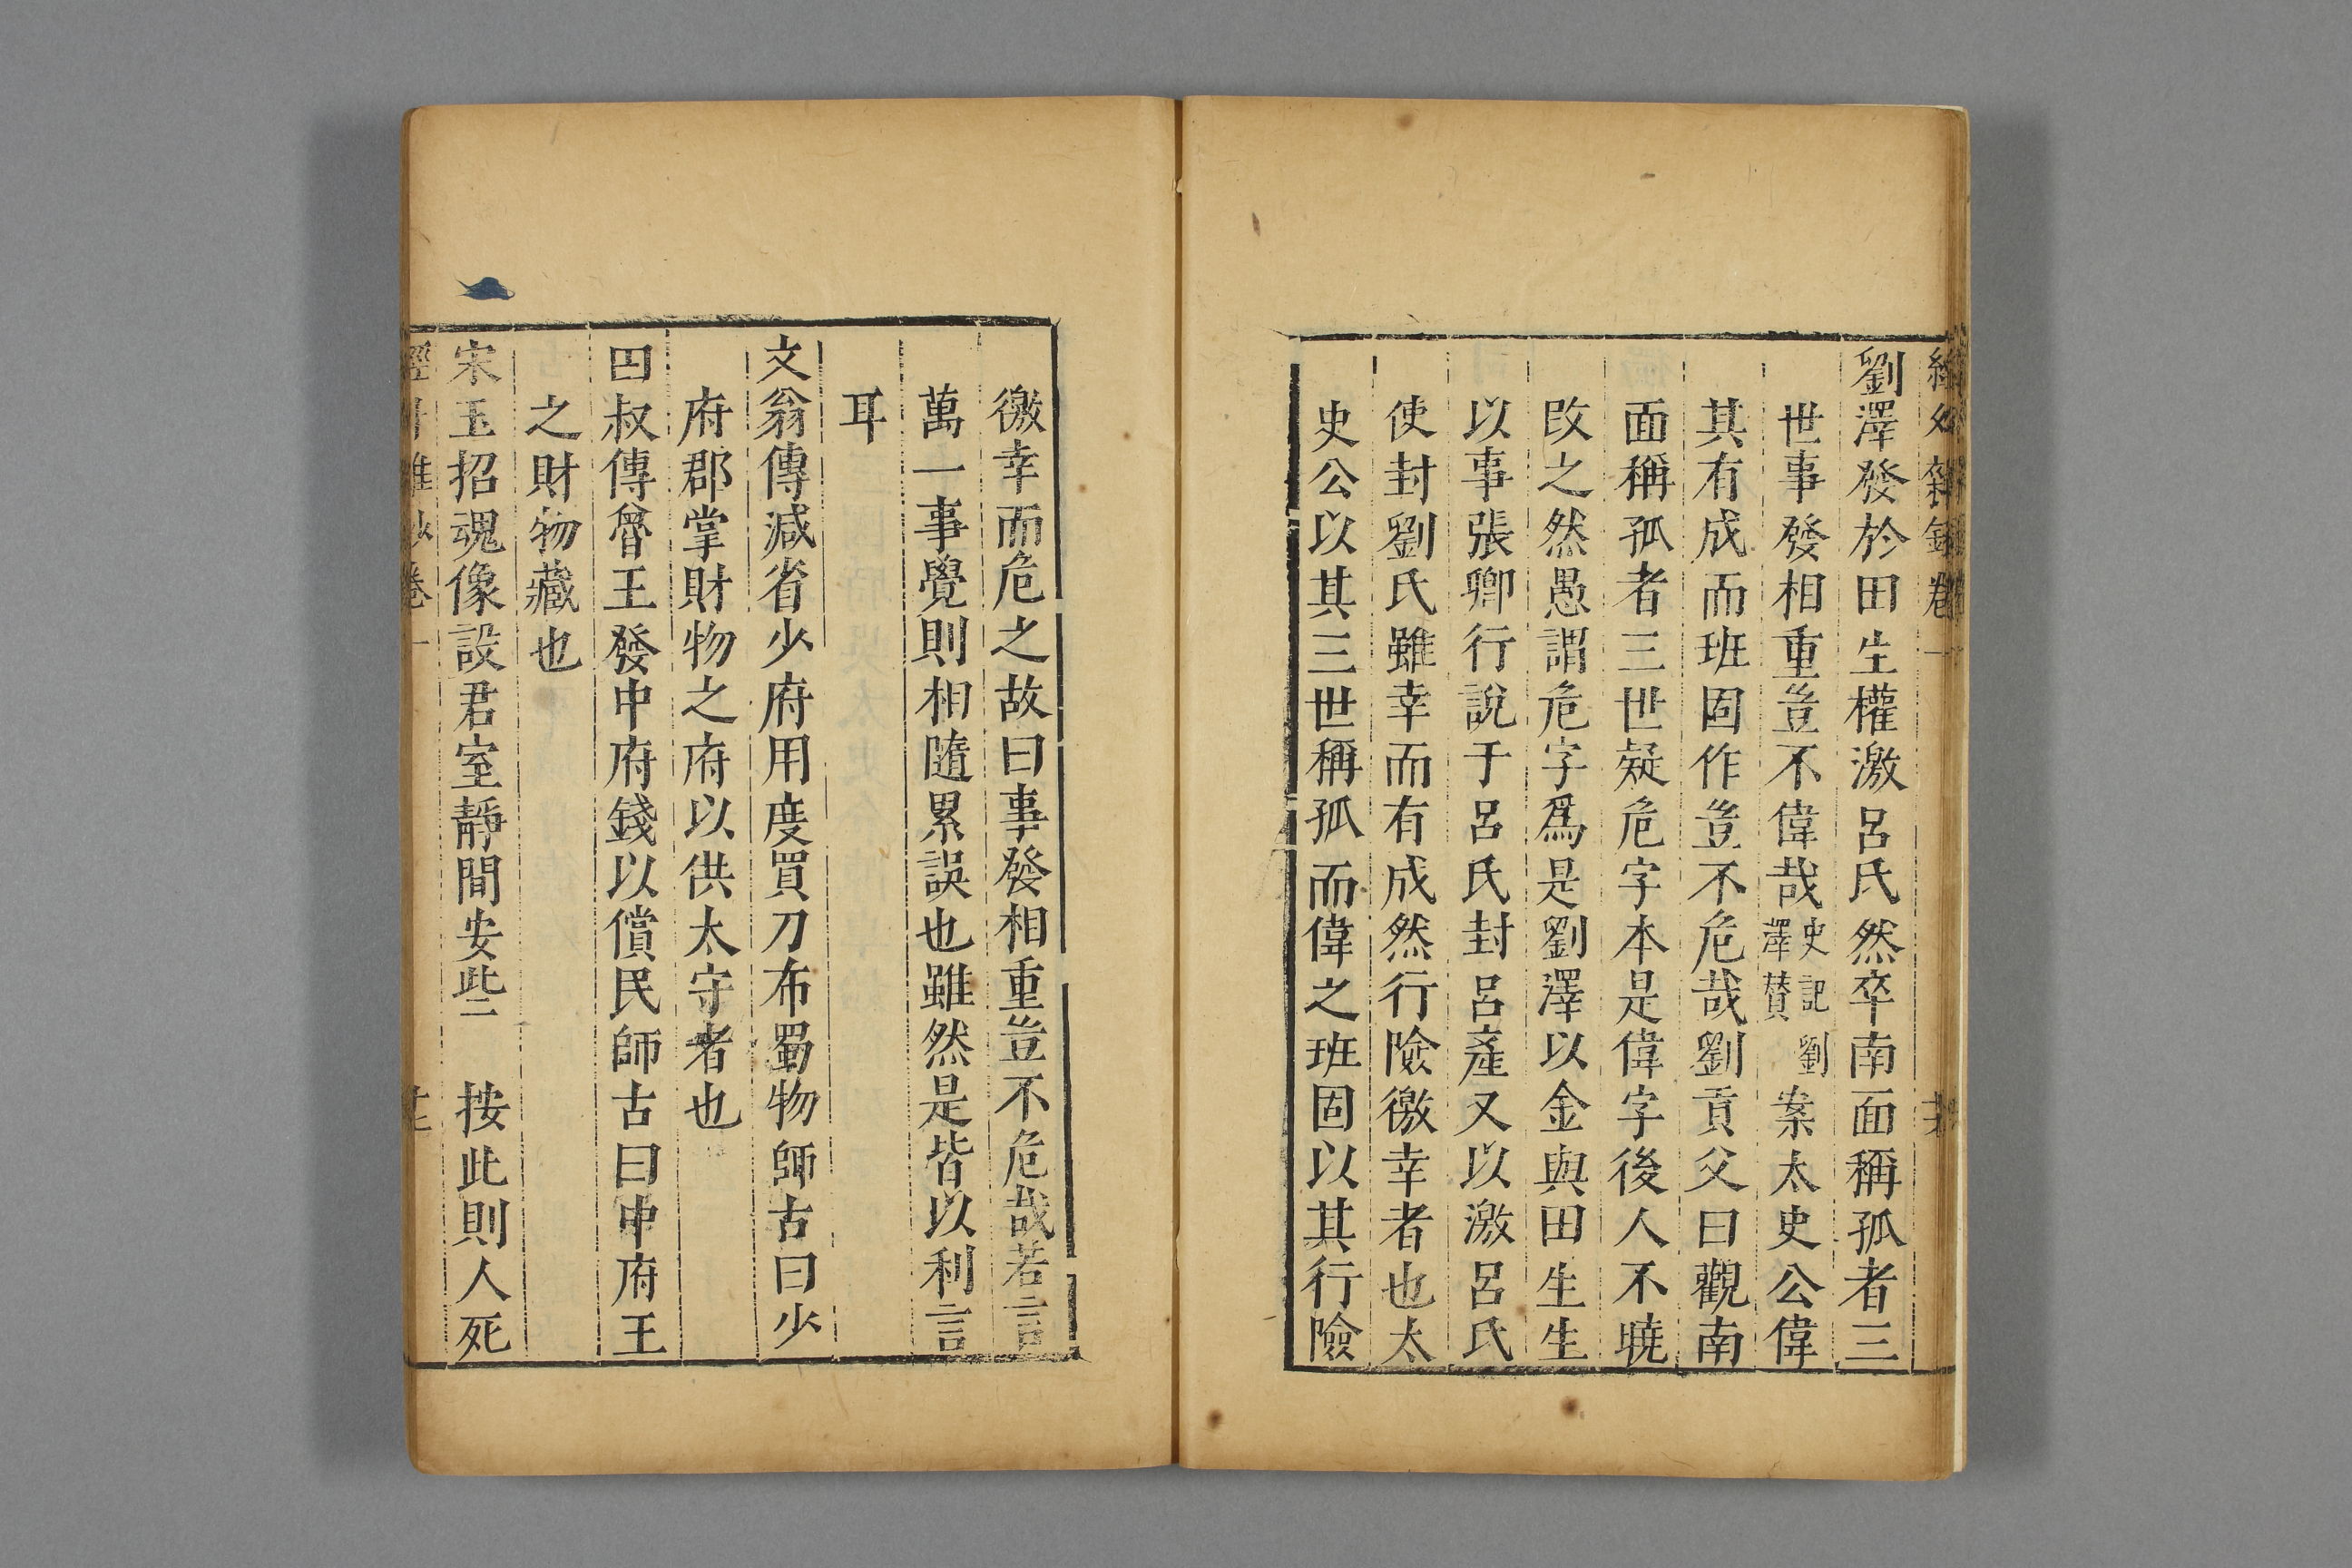 劉澤發於田生權激呂氏然卒南面稱孤者三
世事發相重豈不偉哉史記劉澤賛案太史公偉
其有成而班固作豈不危哉劉貢父曰觀南
面稱孤者三世疑危字本是偉字後人不曉
改之然愚謂危字爲是劉澤以金與田生生
以事張卿行說于呂氏封呂產又以激呂氏
使封劉氏雖幸而有成然行險徼幸者也太
史公以其三世稱孤而偉之班固以其行險
徼幸而危之故曰事發相重豈不危哉若言
萬一事覺則相隨累誤也雖然是皆以利言
耳
文翁傳減省少府用度買刀布蜀物師古曰少
府郡掌財物之府以供太守者也
田叔傳魯王發中府錢以償民師古曰中府王
之財物藏也
宋玉招魂像設君室靜間安些 按此則人死